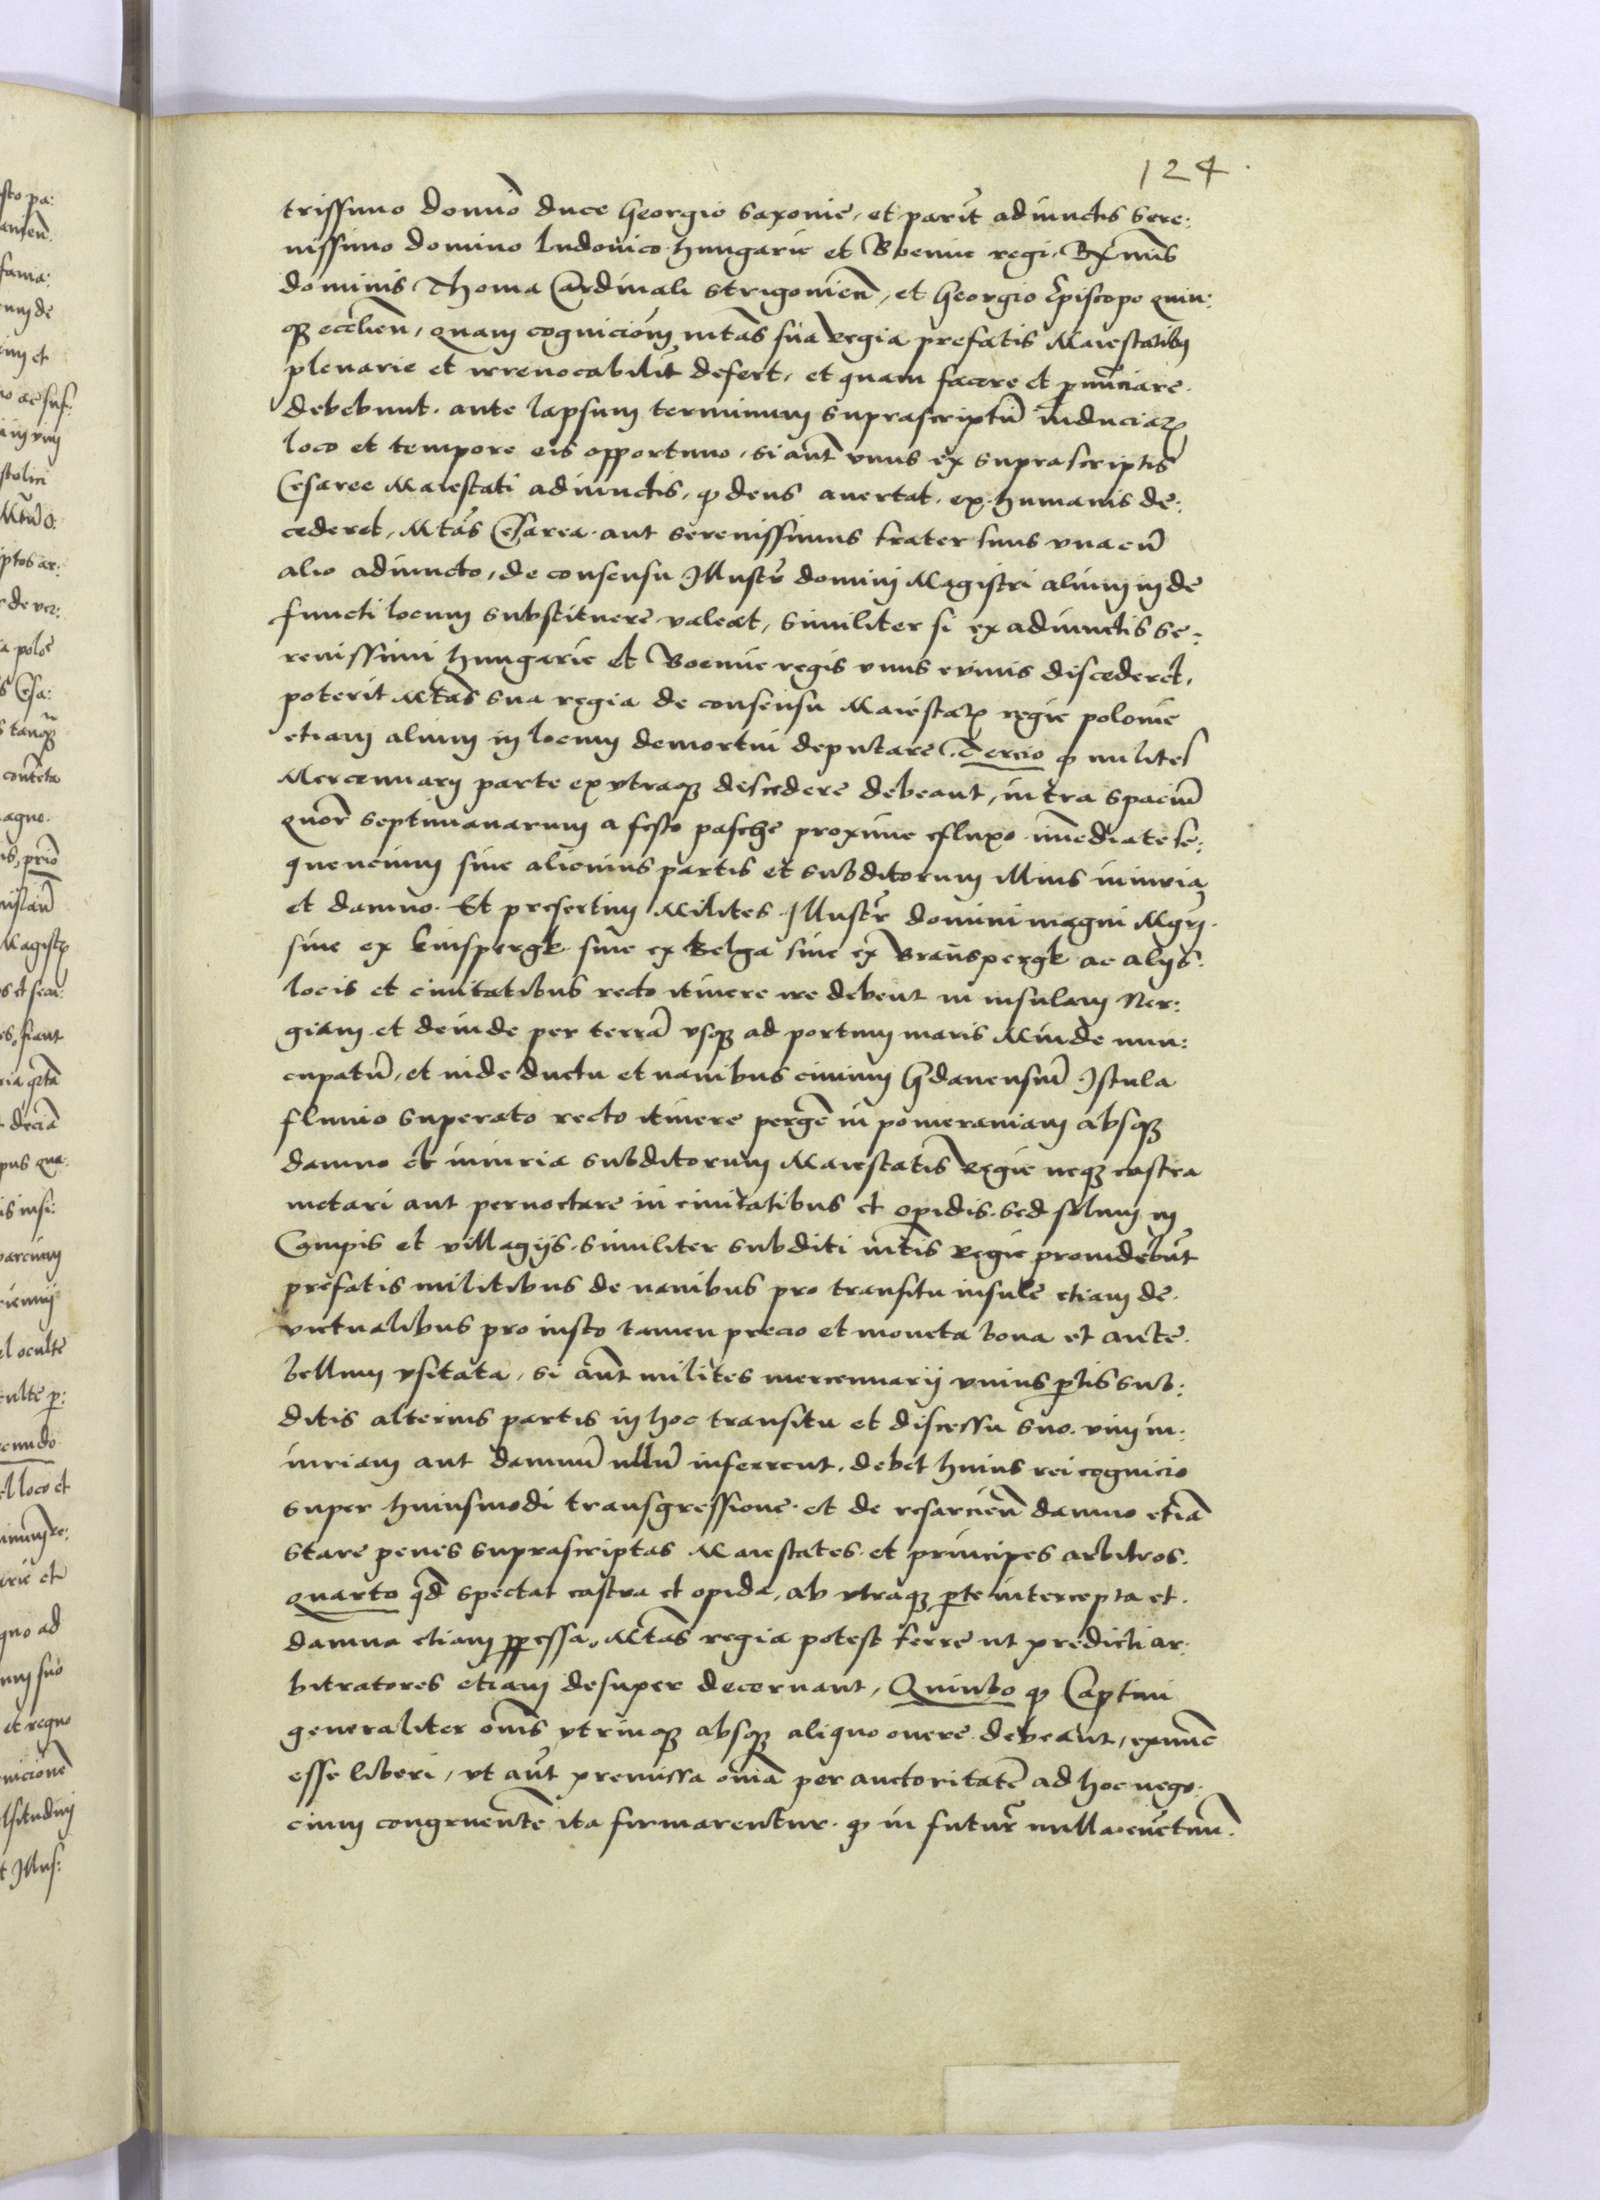 124
trissimo domĩo duce Georgio saxonie, et parit̃ adiunctis sere:
nissimo domino ludouico hungarie et Boemie regi, Rx̃mis
dominis Thoma Cardinali strigonieñ, et Georgio Ep̃iscopo quin:
qȝ eccl̃ieñ, quam cognicionẽ mtãs sua regia prefatis Maiestatibus
plenarie et irreuocabilit̃ defert, et quam facere et pnũciare
debebunt ante lapsum terminum suprascriptũ induciaꝝ
loco et tempore eis opportuno, si aũt vnus ex suprascriptis
Cesaree Maiestati adiunctis, ꝙ deus auertat, ex humanis de:
cederet, Mtãs Cesarea aut serenissimus frater suus vnacũ
alio adiuncto, de consensu Illustr̃ domini Magistri alium in de
functi locum substituere valeat, similiter si ex adiunctis se:
renissimi hungarie et Boemie regis vnus e viuis discederet,
poterit Mtãs sua regia de consensu Maiestatꝭ regie polonie
etiam alium in locum demortui deputare. Tercio ꝙ milites
Mercennarij parte ex vtraqȝ descedere debeant, intra spaciũ
quor̃ septimanarum a festo pasche proxime efluxo im̃ediate se:
quencium sine alicuius partis et subditorum illius iniuria
et damno. Et presertim Milites Illustr̃ domini magni Mgrĩ
siue ex kinspergk siue ex Kelga siue ex Brañspergk ac alijs
locis et ciuitatibus recto itinere ire debent in insulam Ner:
giam et deinde per terrã vsqȝ ad portum maris Minde nun:
cupatũ, et inde ductu et nauibus ciuium Gdanensiũ Istula
fluuio superato recto itinere pergẽ in pomeraniam absqȝ
damno et iniuria subditorum Maiestatis Regie neqȝ castra
metari aut pernoctare in ciuitatibus et opidis, sed solum in
Campis et villagijs. similiter subditi mt̃is Regie prouidebũt
prefatis militibus de nauibus pro transitu insule etiam de
victualibus pro iusto tamen precio et moneta bona et ante
bellum vsitata, si aũt milites mercennarij vnius ꝑtis sub:
ditis alterius partis in hoc transitu et discessu suo vim in:
iuriam aut damnũ ullũ inferrent, debet huius rei cognicio
super huiusmodi transgressione et de resarcieñ damno etiã
stare penes suprascriptas Maiestates et principes arbitros.
Quarto qd̃ spectat castra et opida, ab vtraqȝ ꝑte intercepta et
damna etiam ꝑpessa, Mtãs regia potest ferre ut predicti ar:
bitratores etiam desuper decernant, Quinto ꝙ Captiui
generaliter om̃s vtrinqȝ absqȝ aliquo onere debeant, exnũc
esse liberi, vt aũt premissa om̃ia per auctoritatẽ ad hoc nego:
cium congruentẽ ita firmarentur ꝙ in futur̃ nulla cũctim̃